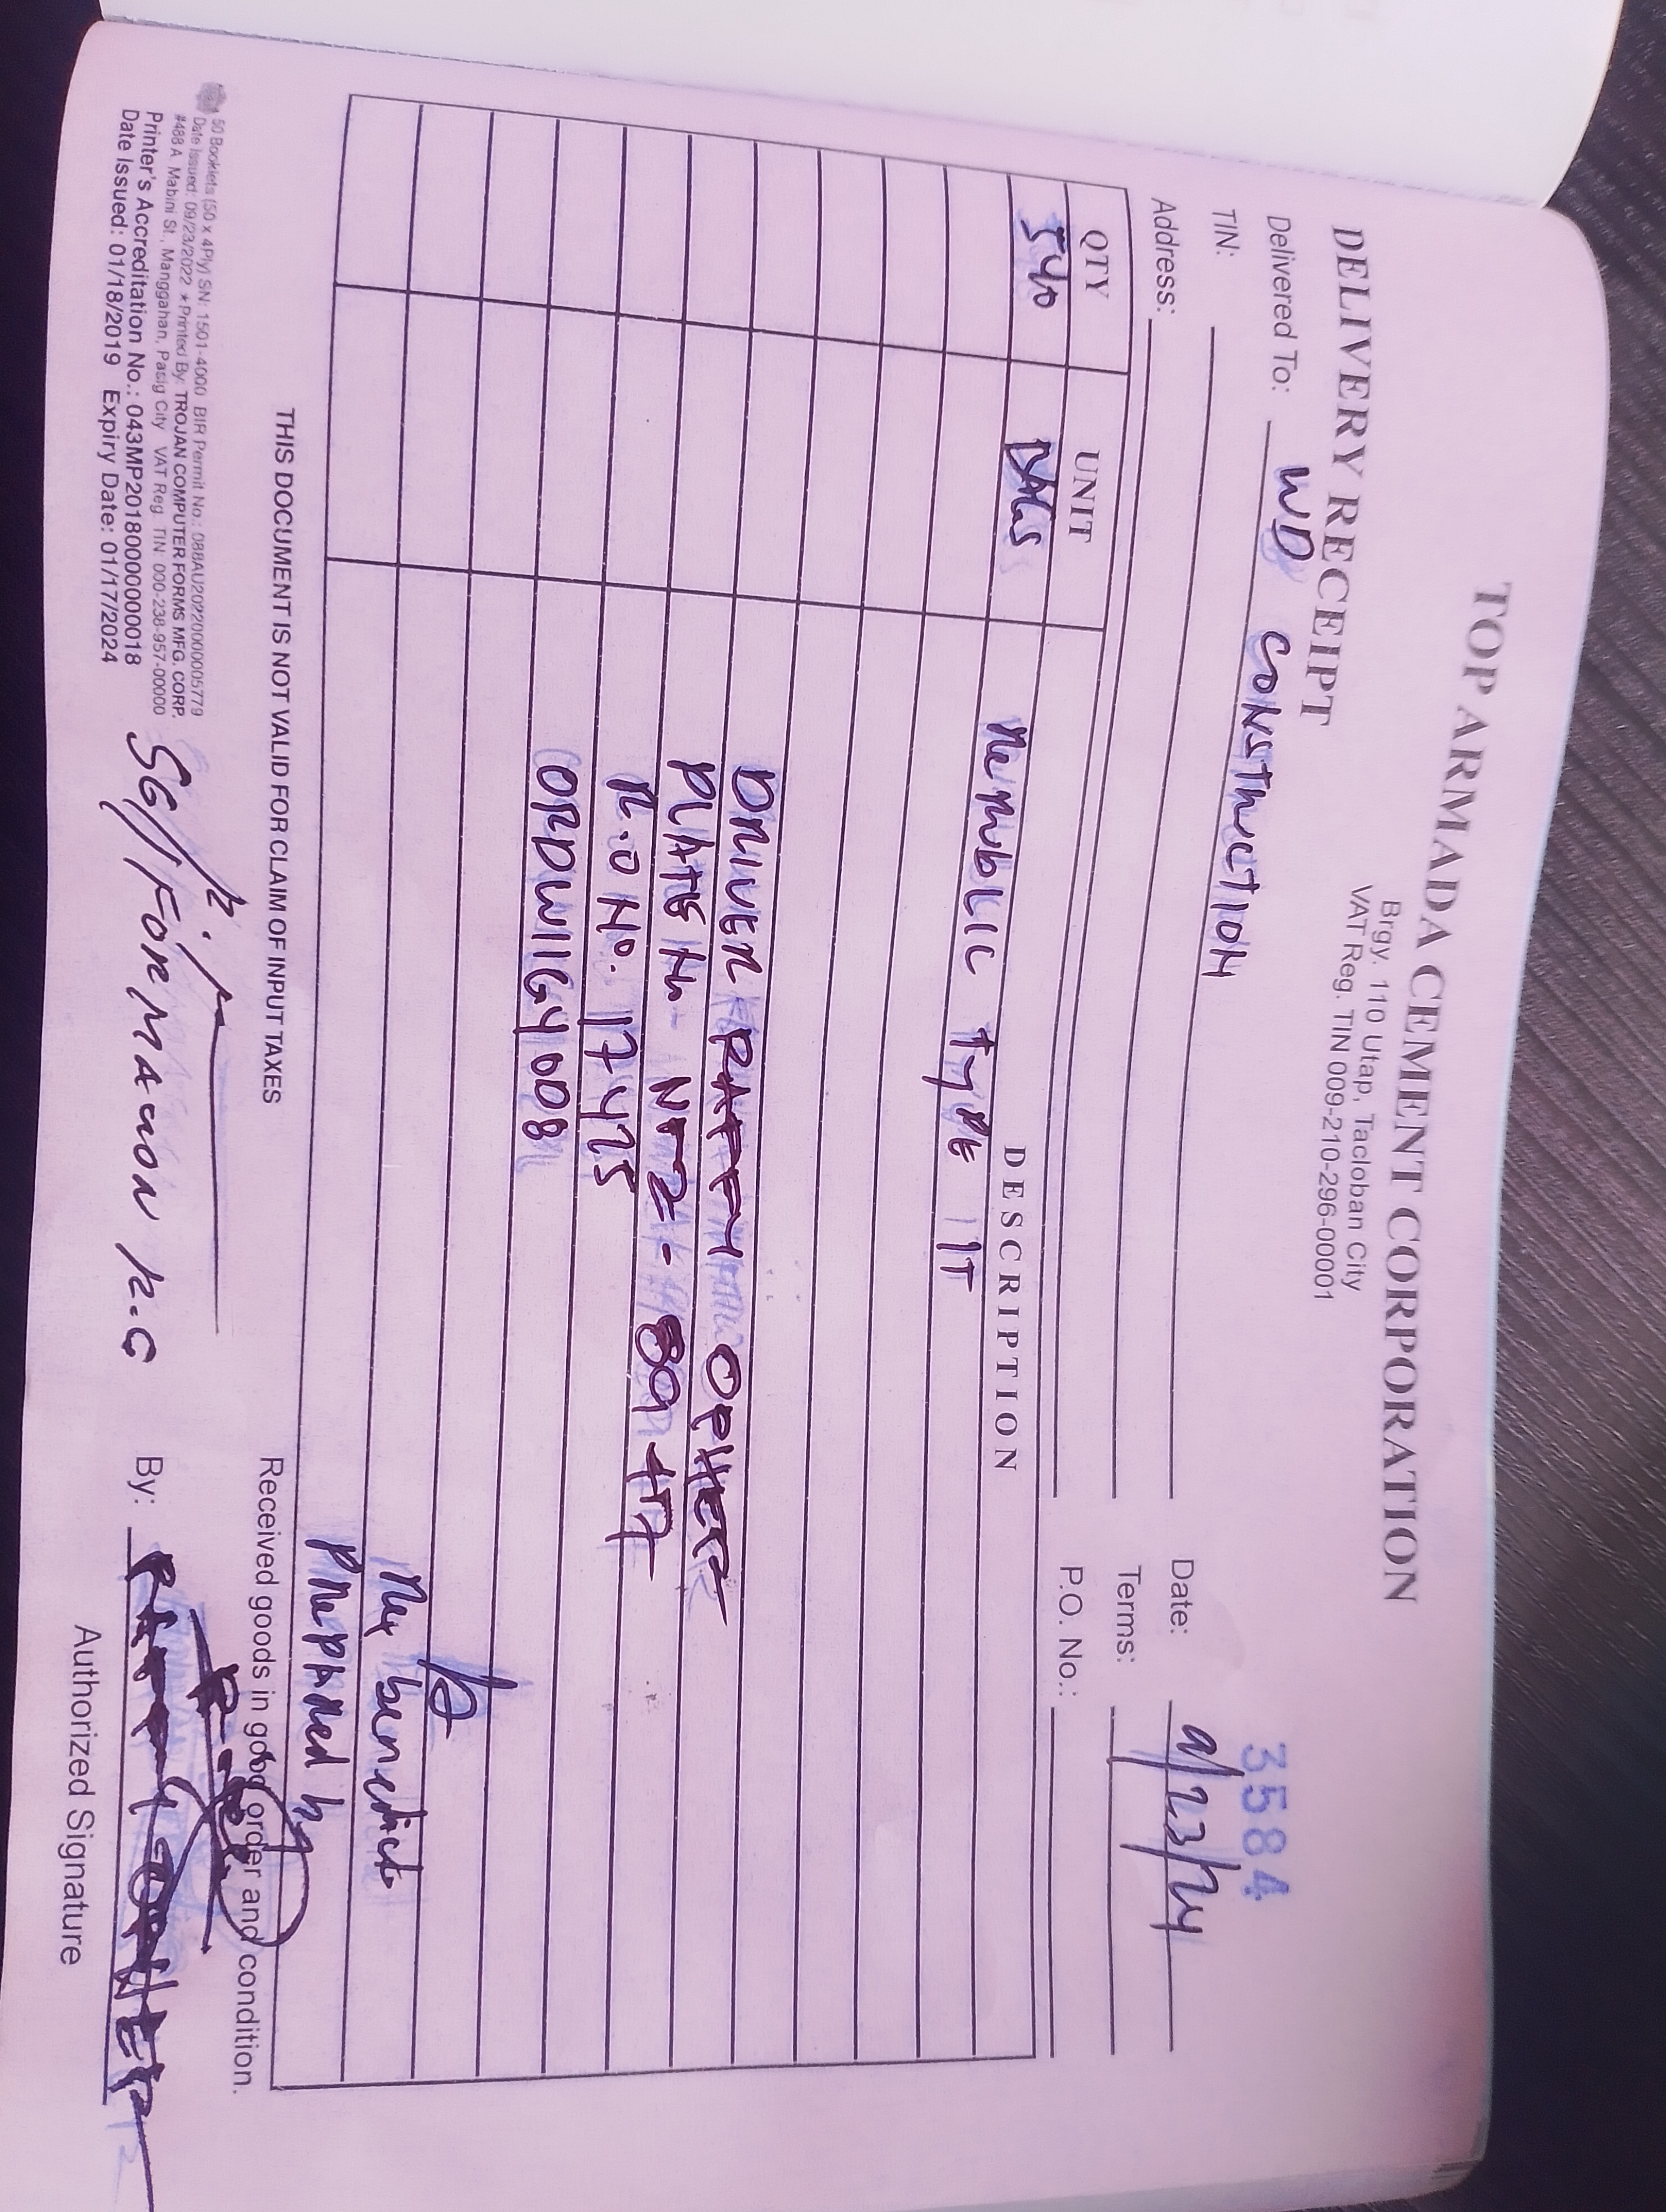 TOP ARMADA CEMENT CORPORATION
Brgy. 110 Utap, Tacloban City
VAT Reg. TIN 009-210-296-00001
DELIVERY RECEIPT
3584
Delivered To: WD CONSTRUCTION
Date: 9/23/24
TIN:
Terms:
Address:
P.O. No.:
QTY UNIT DESCRIPTION
540 BAGS Republic Type 1T
DRIVER RAFFY OPHER
PLATE No. 
R.O No. 17425
ORDW11G4008
Rey benedicto
Prepared by
THIS DOCUMENT IS NOT VALID FOR CLAIM OF INPUT TAXES
Received goods in good order and condition.
50 Booklets (50 x 4Ply) SN: 1501-4000 BIR Permit No.: 088AU20220000005779
Date Issued: 09/23/2022 * Printed By: TROJAN COMPUTER FORMS MFG. CORP.
#488 A. Mabini St., Manggahan, Pasig City VAT Reg. TIN 000-238-957-00000
Printer's Accreditation No.: 043MP20180000000018
Date Issued: 01/18/2019 Expiry Date: 01/17/2024
SG/FORMARON R.G
By:
Authorized Signature